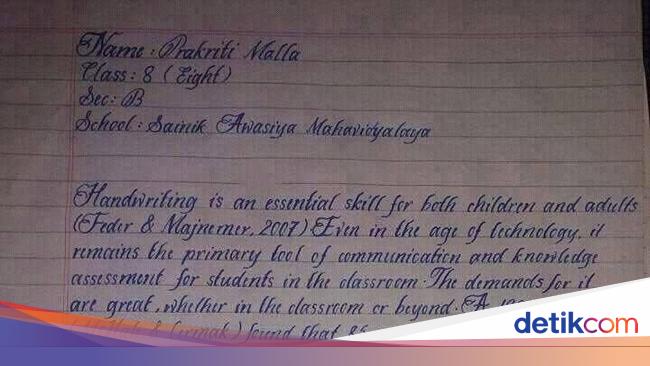 Name : Prakriti Malla
Class : 8 ( Eight )
Sec : B
School : Sainik Awasiya Mahavidyalaya
Handwriting is an essential skill for both children and adults
(Feder & Majnemer, 2007) Even in the age of technology, it
remains the primary tool of communication and knowledge
assessment for students in the classroom. The demands for it
are great, whether in the classroom or beyond. A
found that
detikcom